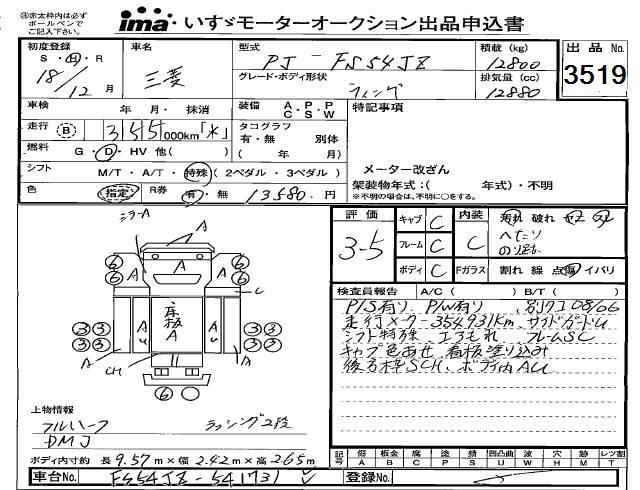 ㊟赤太枠内は必ず
ボールペンで
ご記入下さい。
ima・いすゞモーターオークション出品申込書
初度登録 車名 型式 積載 (kg) 出品 No.
S・H・R 三菱 PJ - FS54JZ 12800 3519
18/12 月 グレード・ボディ形状 排気量 (cc)
ウィング 12880
車検 年 月・抹消 装備 A・P・P C・S・W 特記事項
走行 B 355,000km「*」 タコグラフ
有・無 別体
燃料 G・D・HV 他( ) ( 年 月)
シフト M/T・A/T・特殊 (2ペダル・3ペダル) メーター改ざん
色 指定 R券 有・無 13580 円 架装物年式:( 年式)・不明
※不明の場合は、不明に○をする。
評価 キャブ C 内装 汚れ 破れ
3-5 フレーム C C へたり
ボディ C Fガラス 割れ 線 点 傷 イバリ
検査員報告 A/C( ) B/T( )
P/S有り、P/W有り 別クエ08/66
走行メーター354931Km、サイドガードU
シフト特殊、エアもれ フレームSC
キャブ色あせ、看板塗り込み
後方枠SCH、ボディ内AU
ミラーA
A
A
A
C
⑥ ⑥
⑥ ⑥
A AU 床板A AU A
③③ ③③
③③ ③③
CH
⑥
上物情報
フルハーフ ラッシング2段
DMJ
ボディ内寸約 長 9.57m×幅 2.42m×高 2.65m
記号 傷A 板金B 腐C 塗P 錆S 凹凸曲U 波W 穴H 跡M レツ割T
車台No. FS54JZ-541731 登録No.